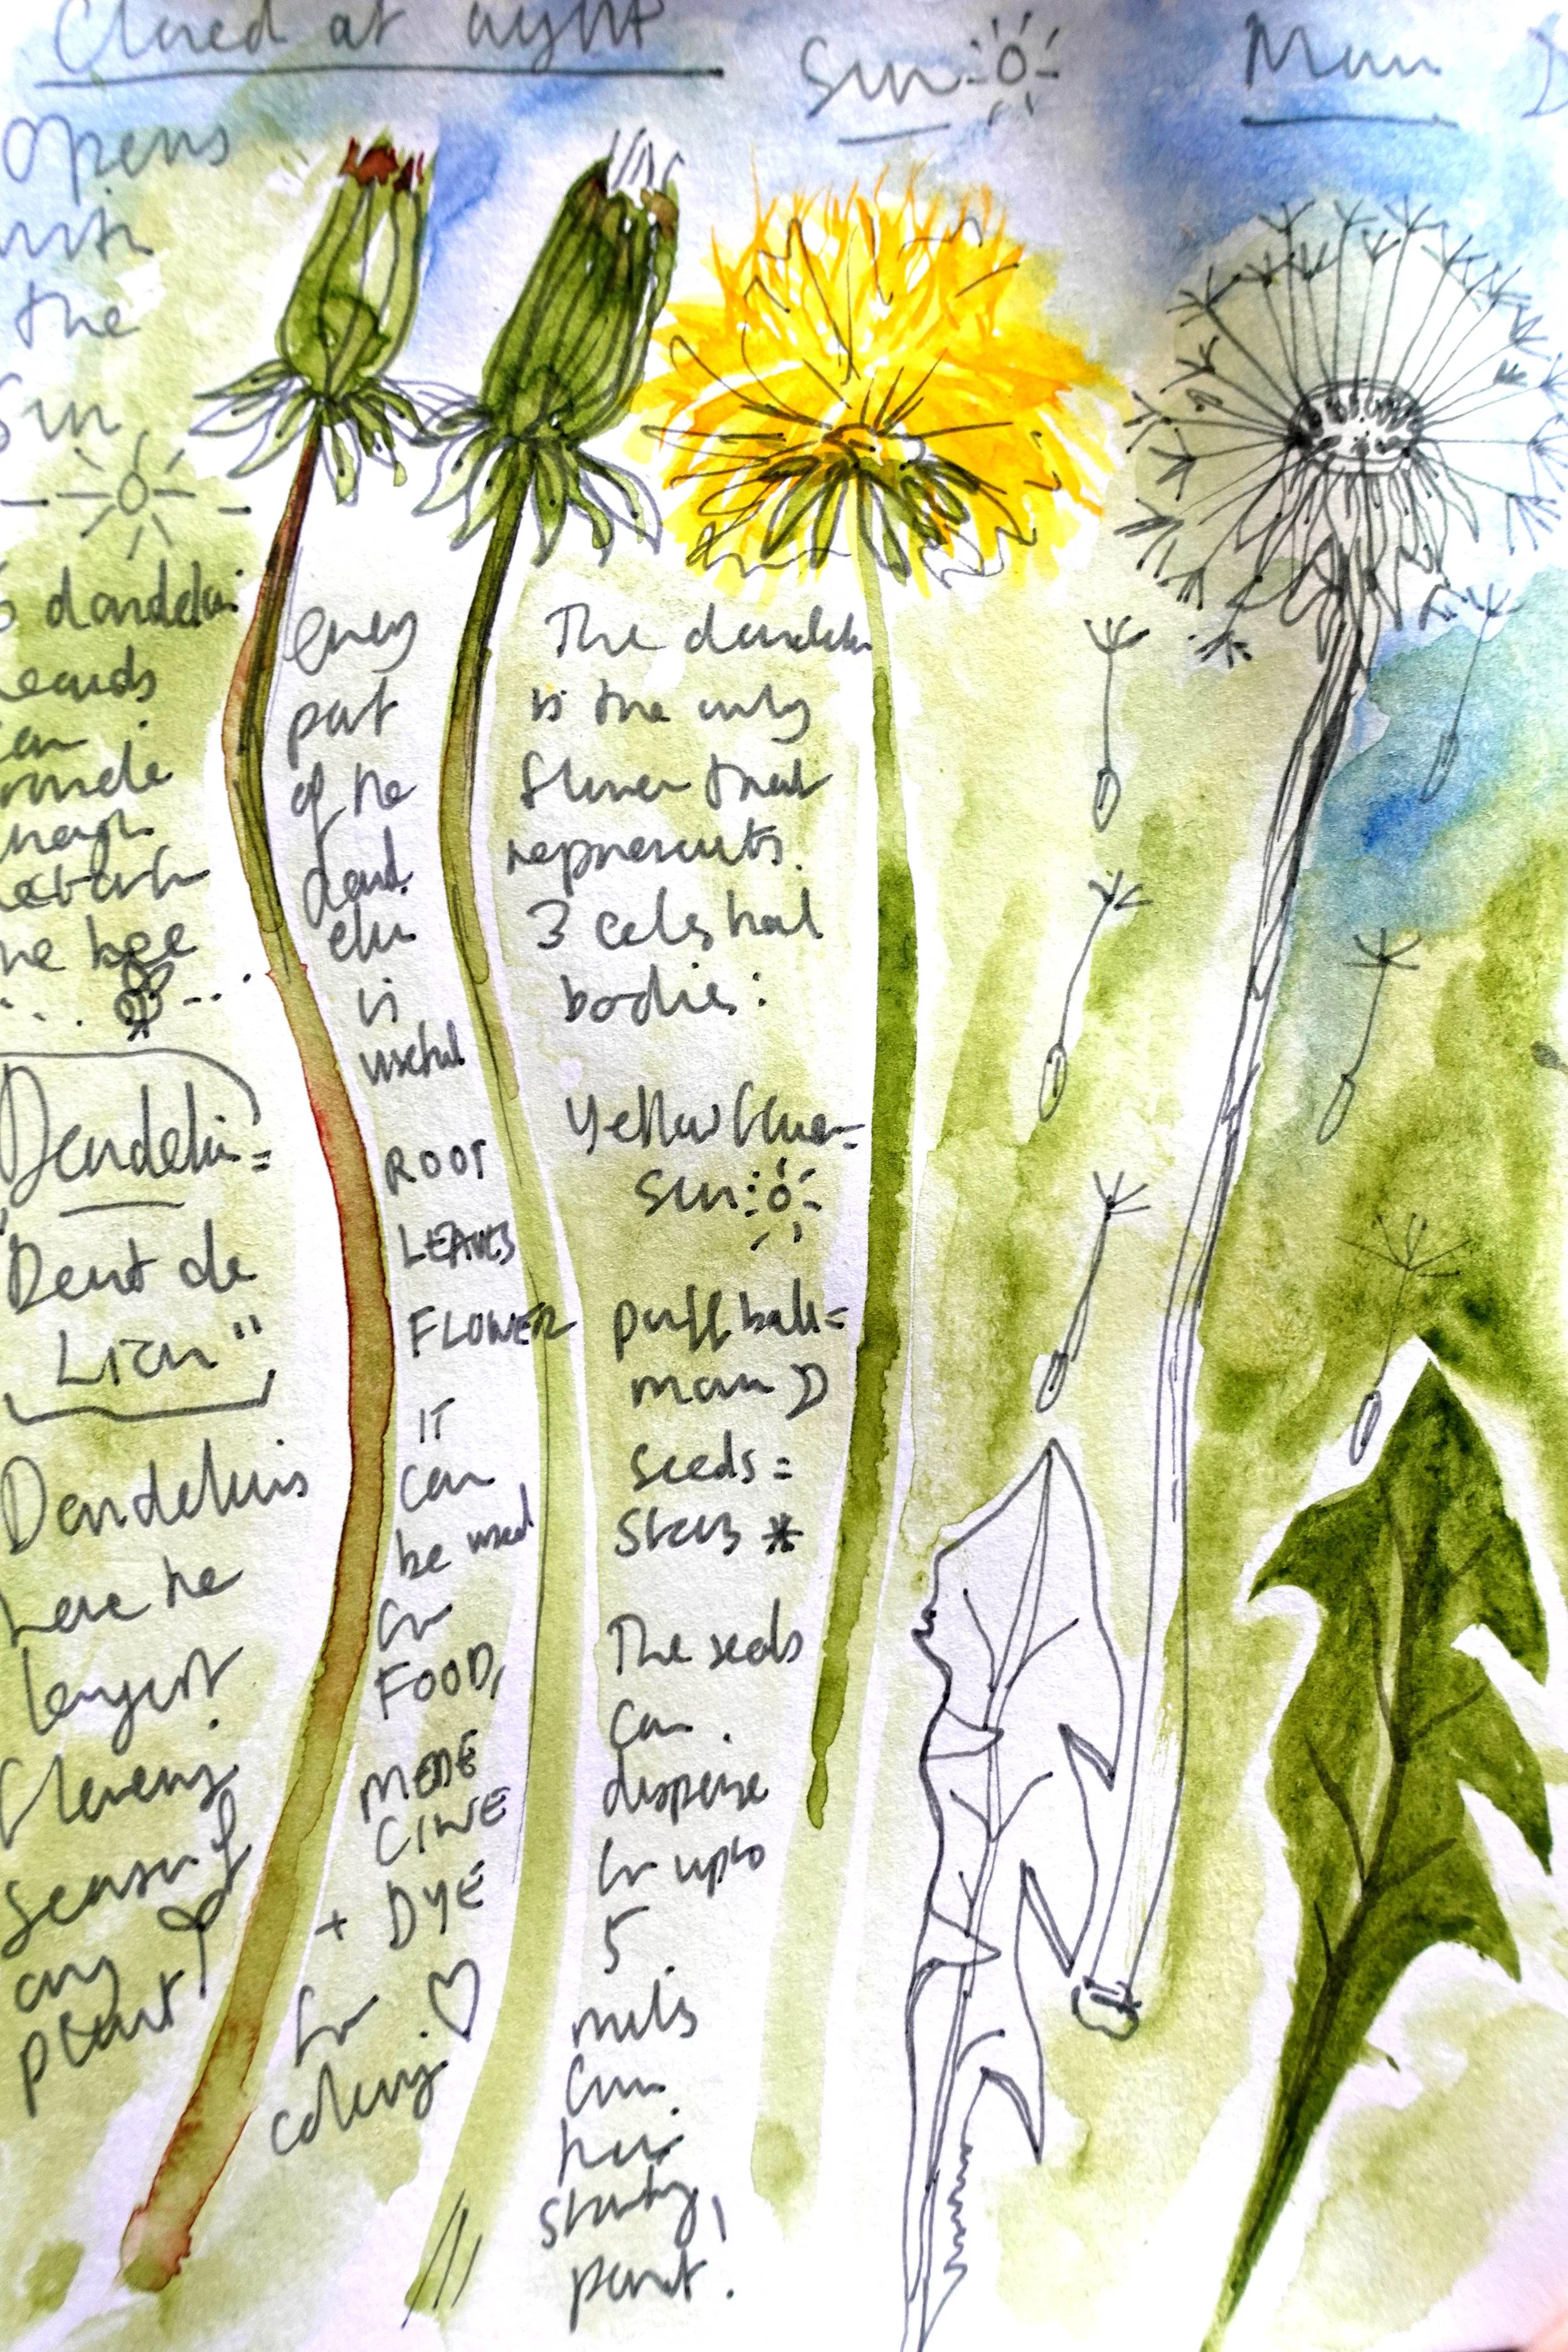 Closed at night
Sun
Moon
Opens
with
the
Sun
dandelion
heads
can
provide
enough
nectar for
one bee
Dandelion =
"Dent de
Lion"
Dandelions
have the
longest
flowering
season of
any
plant
every
part
of the
dand
elion
is
useful
ROOT
LEAVES
FLOWER
IT
can
be used
for
FOOD,
MEDE
CINE
+ DYE
for
colouring.
The dandelion
is the only
flower that
represents.
3 celestial
bodies:
yellow flower =
Sun
puff ball =
moon
seeds =
Stars *
The seeds
can
disperse
for up to
5
miles
from
their
starting
point.